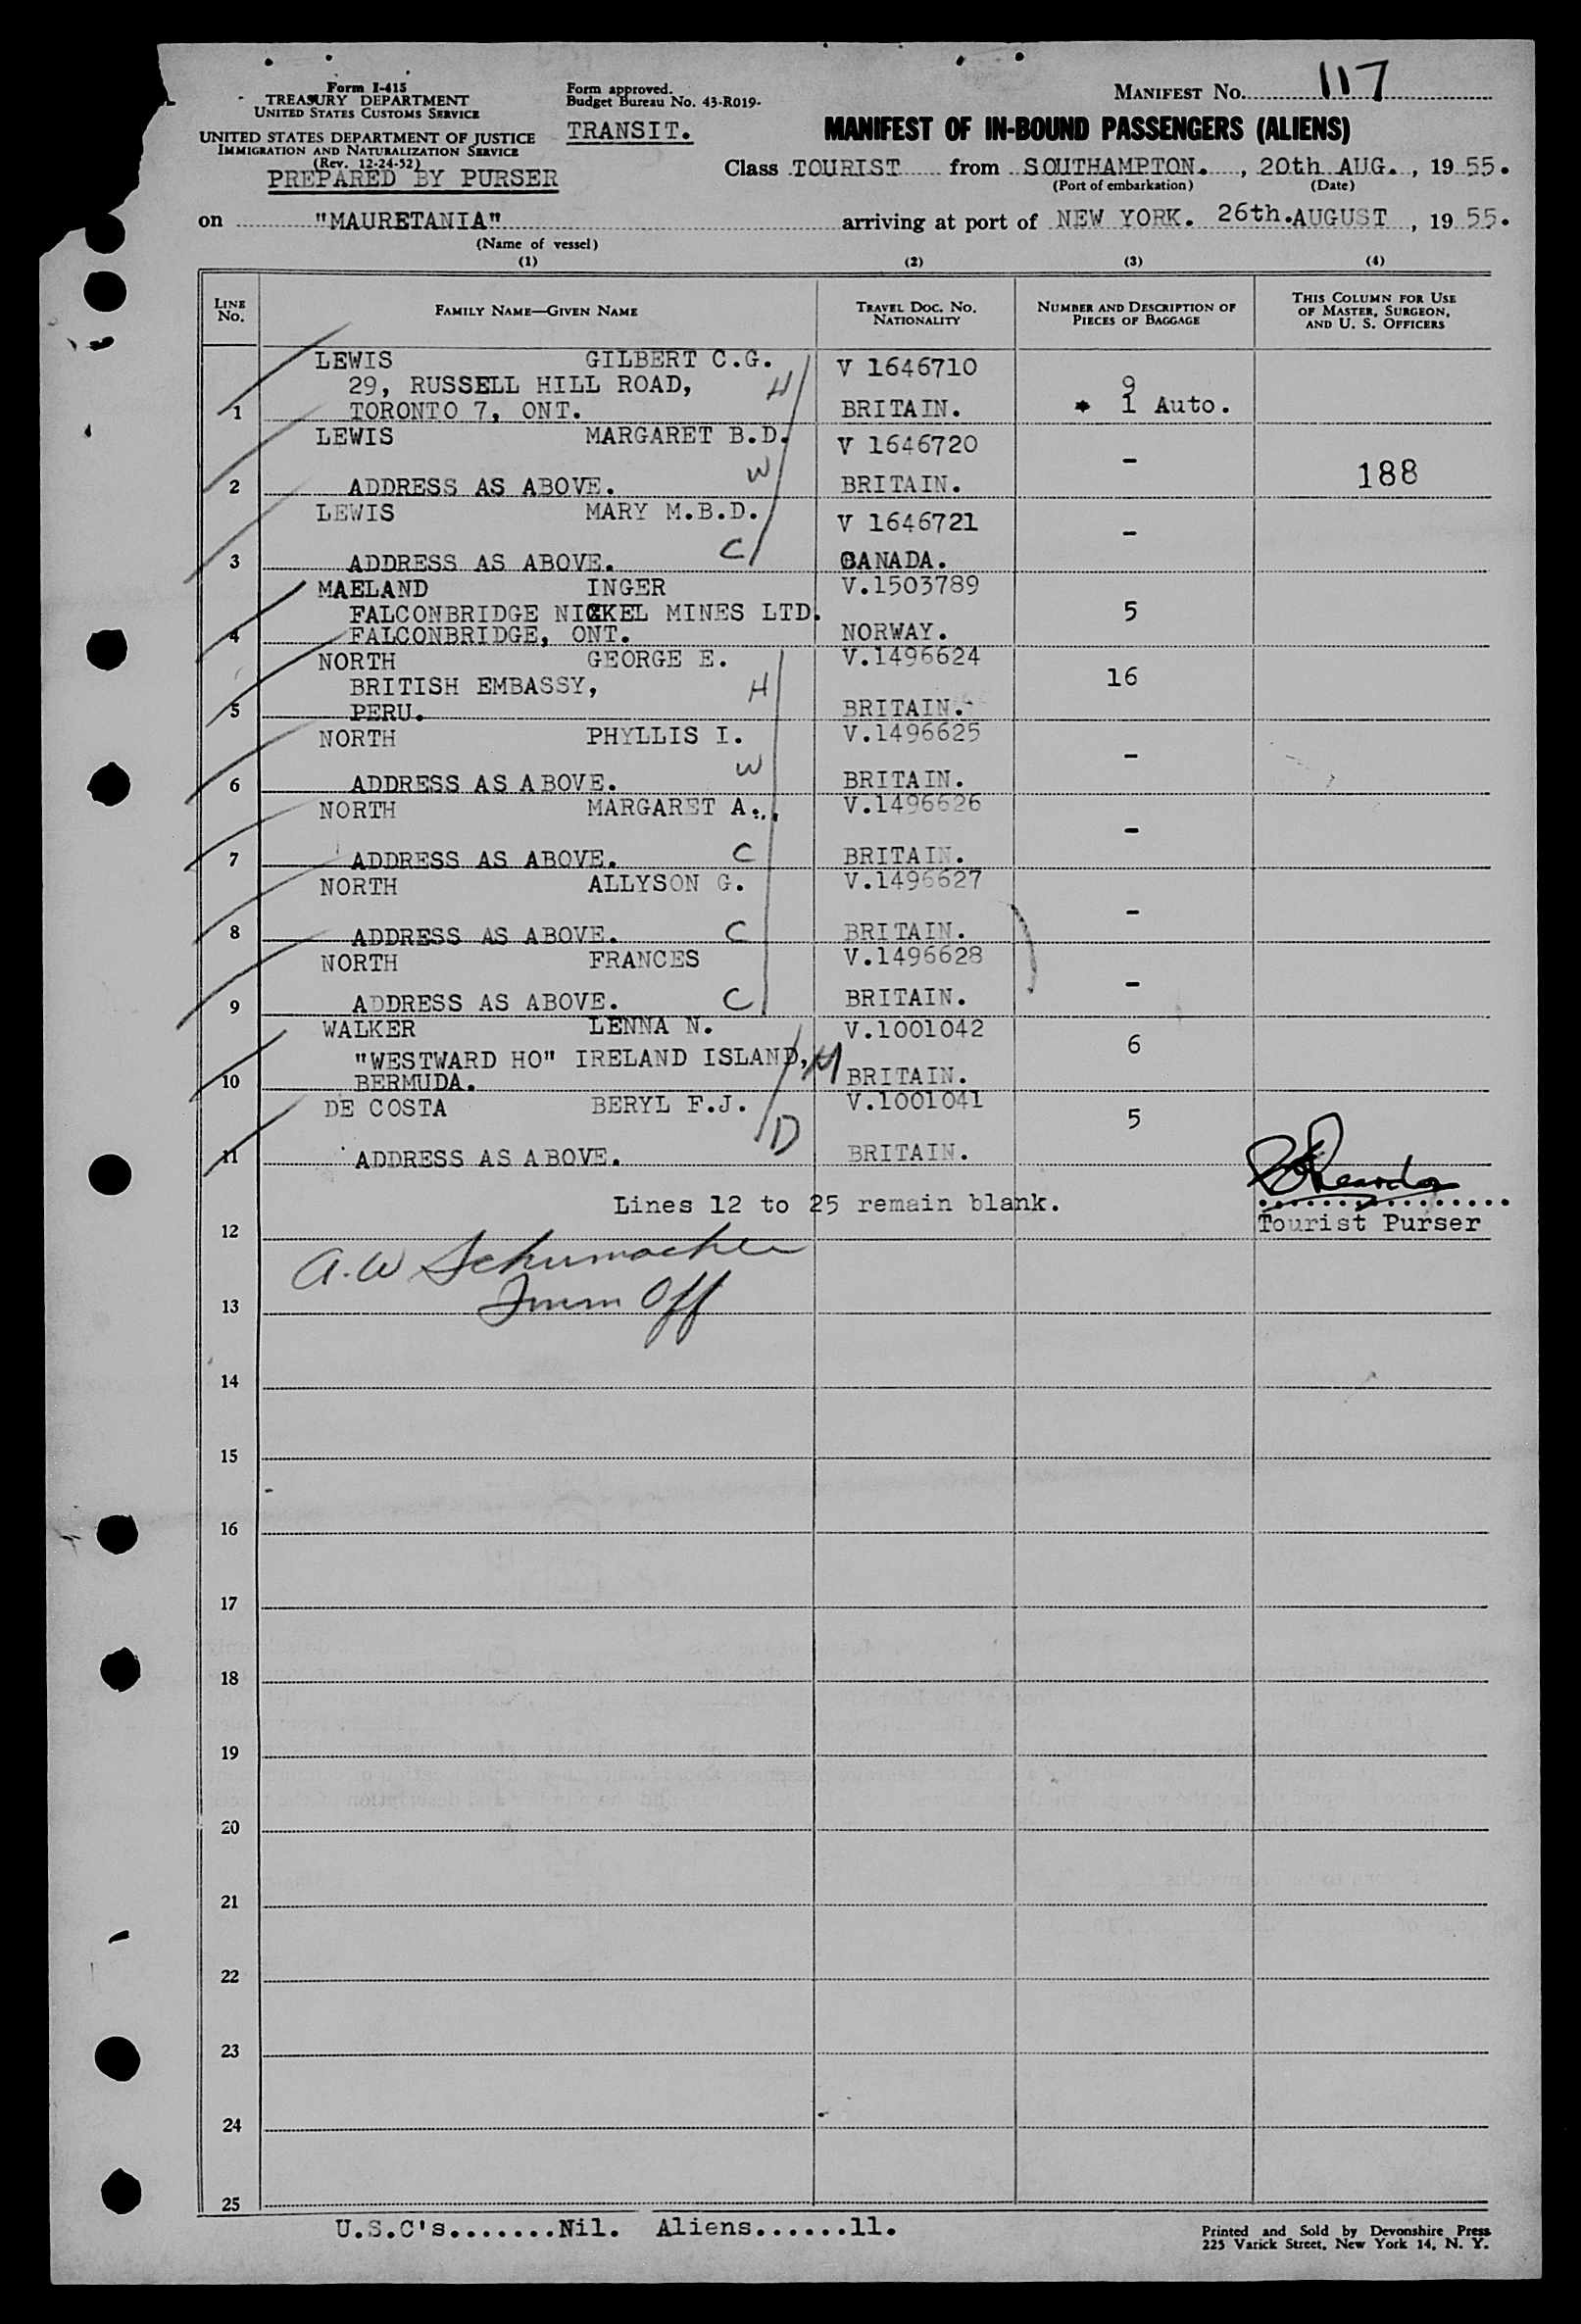 Form I-415
TREASURY DEPARTMENT
UNITED STATES CUSTOMS SERVICE
UNITED STATES DEPARTMENT OF JUSTICE
IMMIGRATION AND NATURALIZATION SERVICE
(Rev. 12-24-52)
PREPARED BY PURSER
Form approved.
Budget Bureau No. 43-R019.
TRANSIT.
MANIFEST NO. 117
MANIFEST OF IN-BOUND PASSENGERS (ALIENS)
Class TOURIST from SOUTHAMPTON. , 20th AUG. , 19 55.
(Port of embarkation) (Date)
on "MAURETANIA" arriving at port of NEW YORK. 26th. AUGUST , 19 55.
(Name of vessel)
(1) (2) (3) (4)
LINE NO. FAMILY NAME—GIVEN NAME TRAVEL DOC. NO. NATIONALITY NUMBER AND DESCRIPTION OF PIECES OF BAGGAGE THIS COLUMN FOR USE OF MASTER, SURGEON, AND U. S. OFFICERS
LEWIS GILBERT C.G. V 1646710
29, RUSSELL HILL ROAD, H 9
1 TORONTO 7, ONT. BRITAIN. 1 Auto.
LEWIS MARGARET B.D. V 1646720
W - 188
2 ADDRESS AS ABOVE. BRITAIN.
LEWIS MARY M.B.D. V 1646721
C -
3 ADDRESS AS ABOVE. CANADA.
MAELAND INGER V.1503789
FALCONBRIDGE NICKEL MINES LTD. 5
4 FALCONBRIDGE, ONT. NORWAY.
NORTH GEORGE E. V.1496624
BRITISH EMBASSY, H 16
5 PERU. BRITAIN.
NORTH PHYLLIS I. V.1496625
W -
6 ADDRESS AS ABOVE. BRITAIN.
NORTH MARGARET A. V.1496626
C -
7 ADDRESS AS ABOVE. BRITAIN.
NORTH ALLYSON G. V.1496627
C -
8 ADDRESS AS ABOVE. BRITAIN.
NORTH FRANCES V.1496628
C -
9 ADDRESS AS ABOVE. BRITAIN.
WALKER LENNA N. V.1001042
"WESTWARD HO" IRELAND ISLAND, M 6
10 BERMUDA. BRITAIN.
DE COSTA BERYL F.J. V.1001041
D 5
11 ADDRESS AS ABOVE. BRITAIN.
Lines 12 to 25 remain blank.
Tourist Purser
12
A. W Schumacher
13 Imm Off
14
15
16
17
18
19
20
21
22
23
24
25
U.S.C's.......Nil. Aliens......11.
Printed and Sold by Devonshire Press
225 Varick Street, New York 14, N. Y.